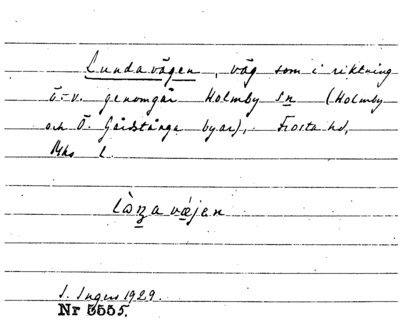 Lundavägen, väg som i riktning
ö.-v. genomgår Holmby sn (Holmby
och Ö. Gårdstånga byar), Frosta hd,
Mhs l.
I. Ingers 1929.
Nr 5555.